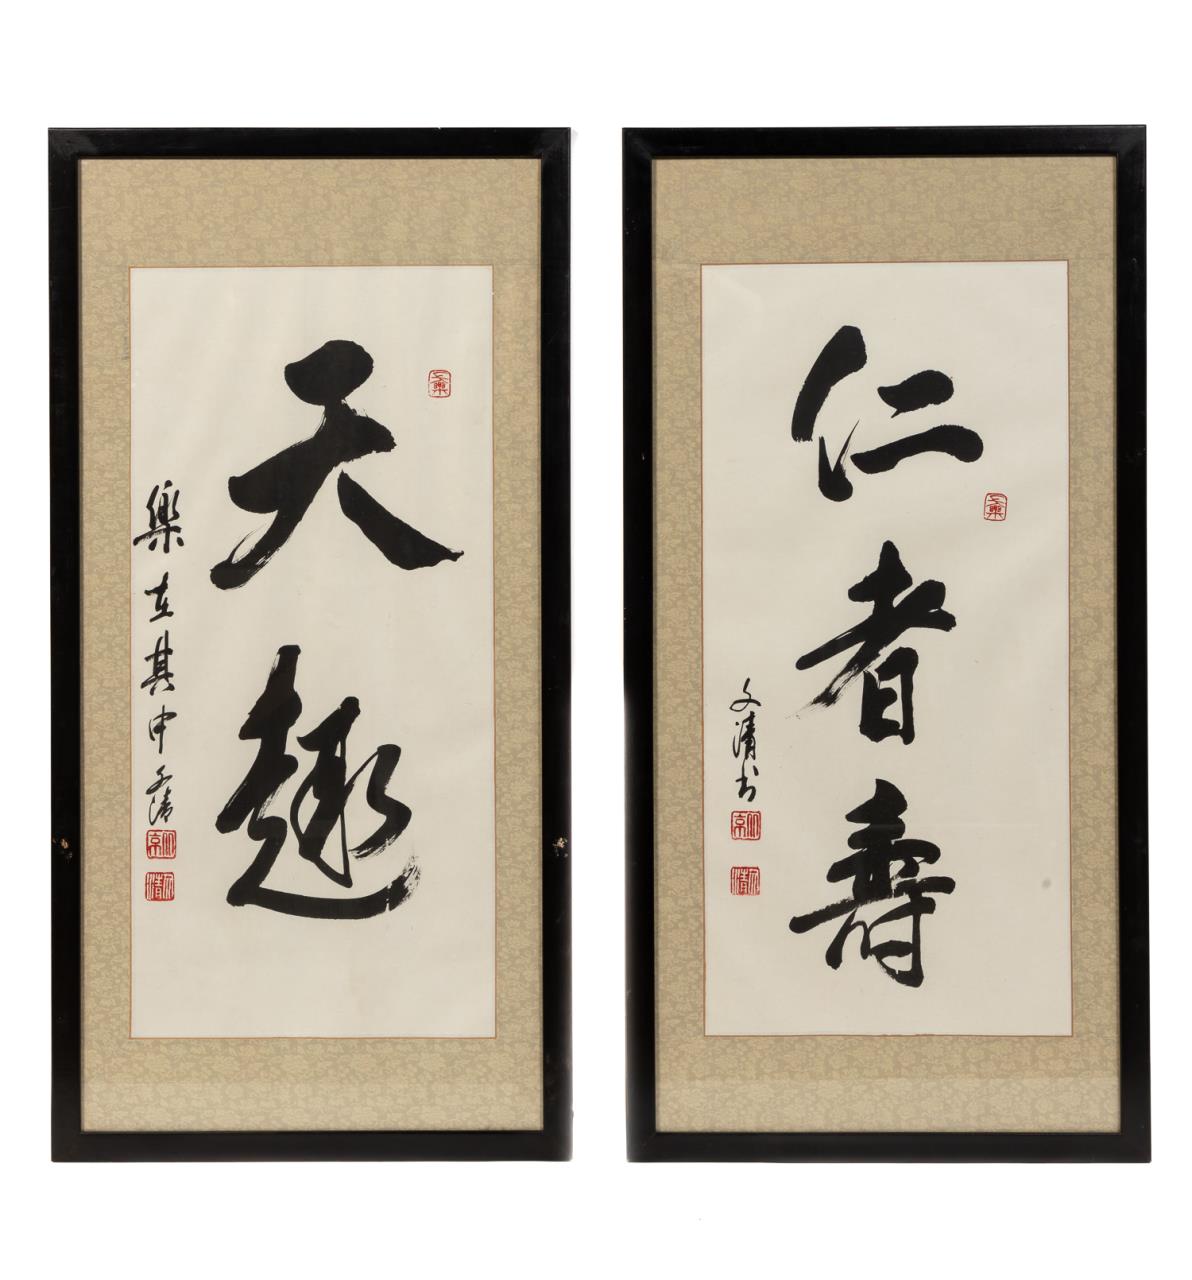 天趣
樂在其中 文清
仁者壽
文清书